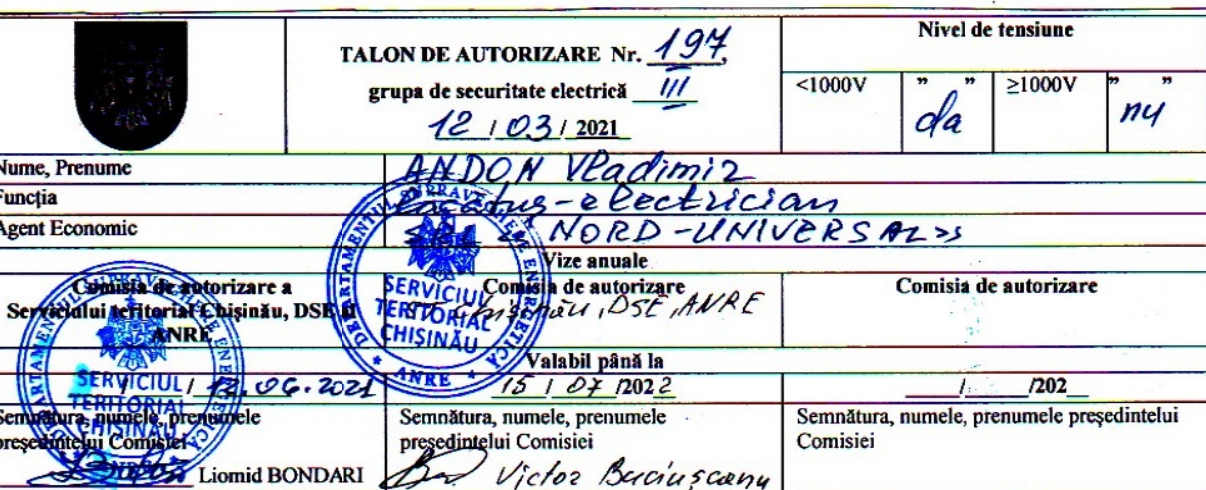 TALON DE AUTORIZARE Nr. 197,
grupa de securitate electrică III
12 / 03 / 2021
Nivel de tensiune
<1000V " da " ≥1000V " nu "
Nume, Prenume ANDON Vladimir
Funcția Lăcătuș-electrician
Agent Economic SRL « NORD-UNIVERSAL»
Vize anuale
Comisia de autorizare a
Serviciului teritorial Chișinău, DSE al
ANRE
Comisia de autorizare
ST Chișinău, DSE, ANRE
Comisia de autorizare
Valabil până la
.06.2021
15 / 07 /2022
/ /202
Semnătura, numele, prenumele
președintelui Comisiei
Liomid BONDARI
Semnătura, numele, prenumele
președintelui Comisiei
Victor Buciușcanu
Semnătura, numele, prenumele președintelui
Comisiei
DEPARTAMENTUL SUPRAVEGHERE ENERGETICĂ
SERVICIUL
TERITORIAL
CHIȘINĂU
ANRE
DEPARTAMENTUL SUPRAVEGHERE ENERGETICĂ
SERVICIUL
TERITORIAL
CHIȘINĂU
ANRE